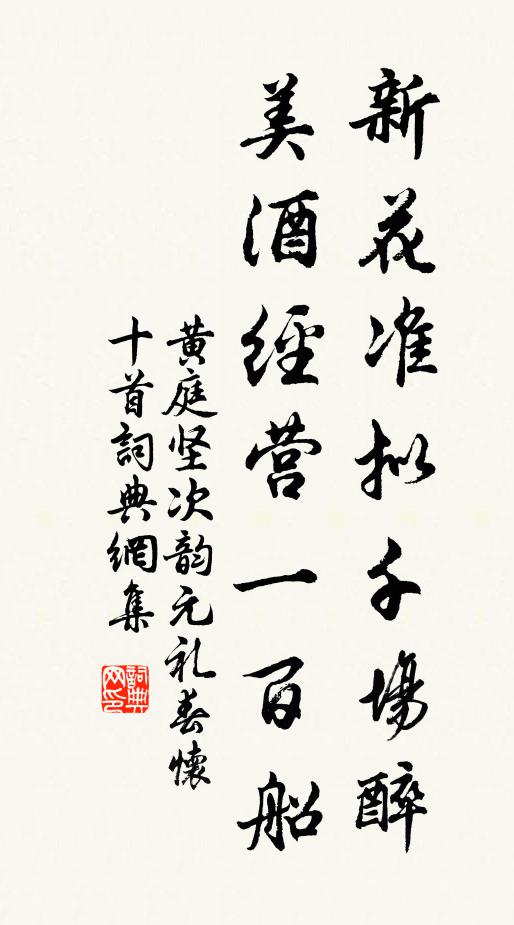 新花准拟千場醉
美酒經营一百船
黄庭坚次韵元礼春懷
十首詞典網集
詞典
网印